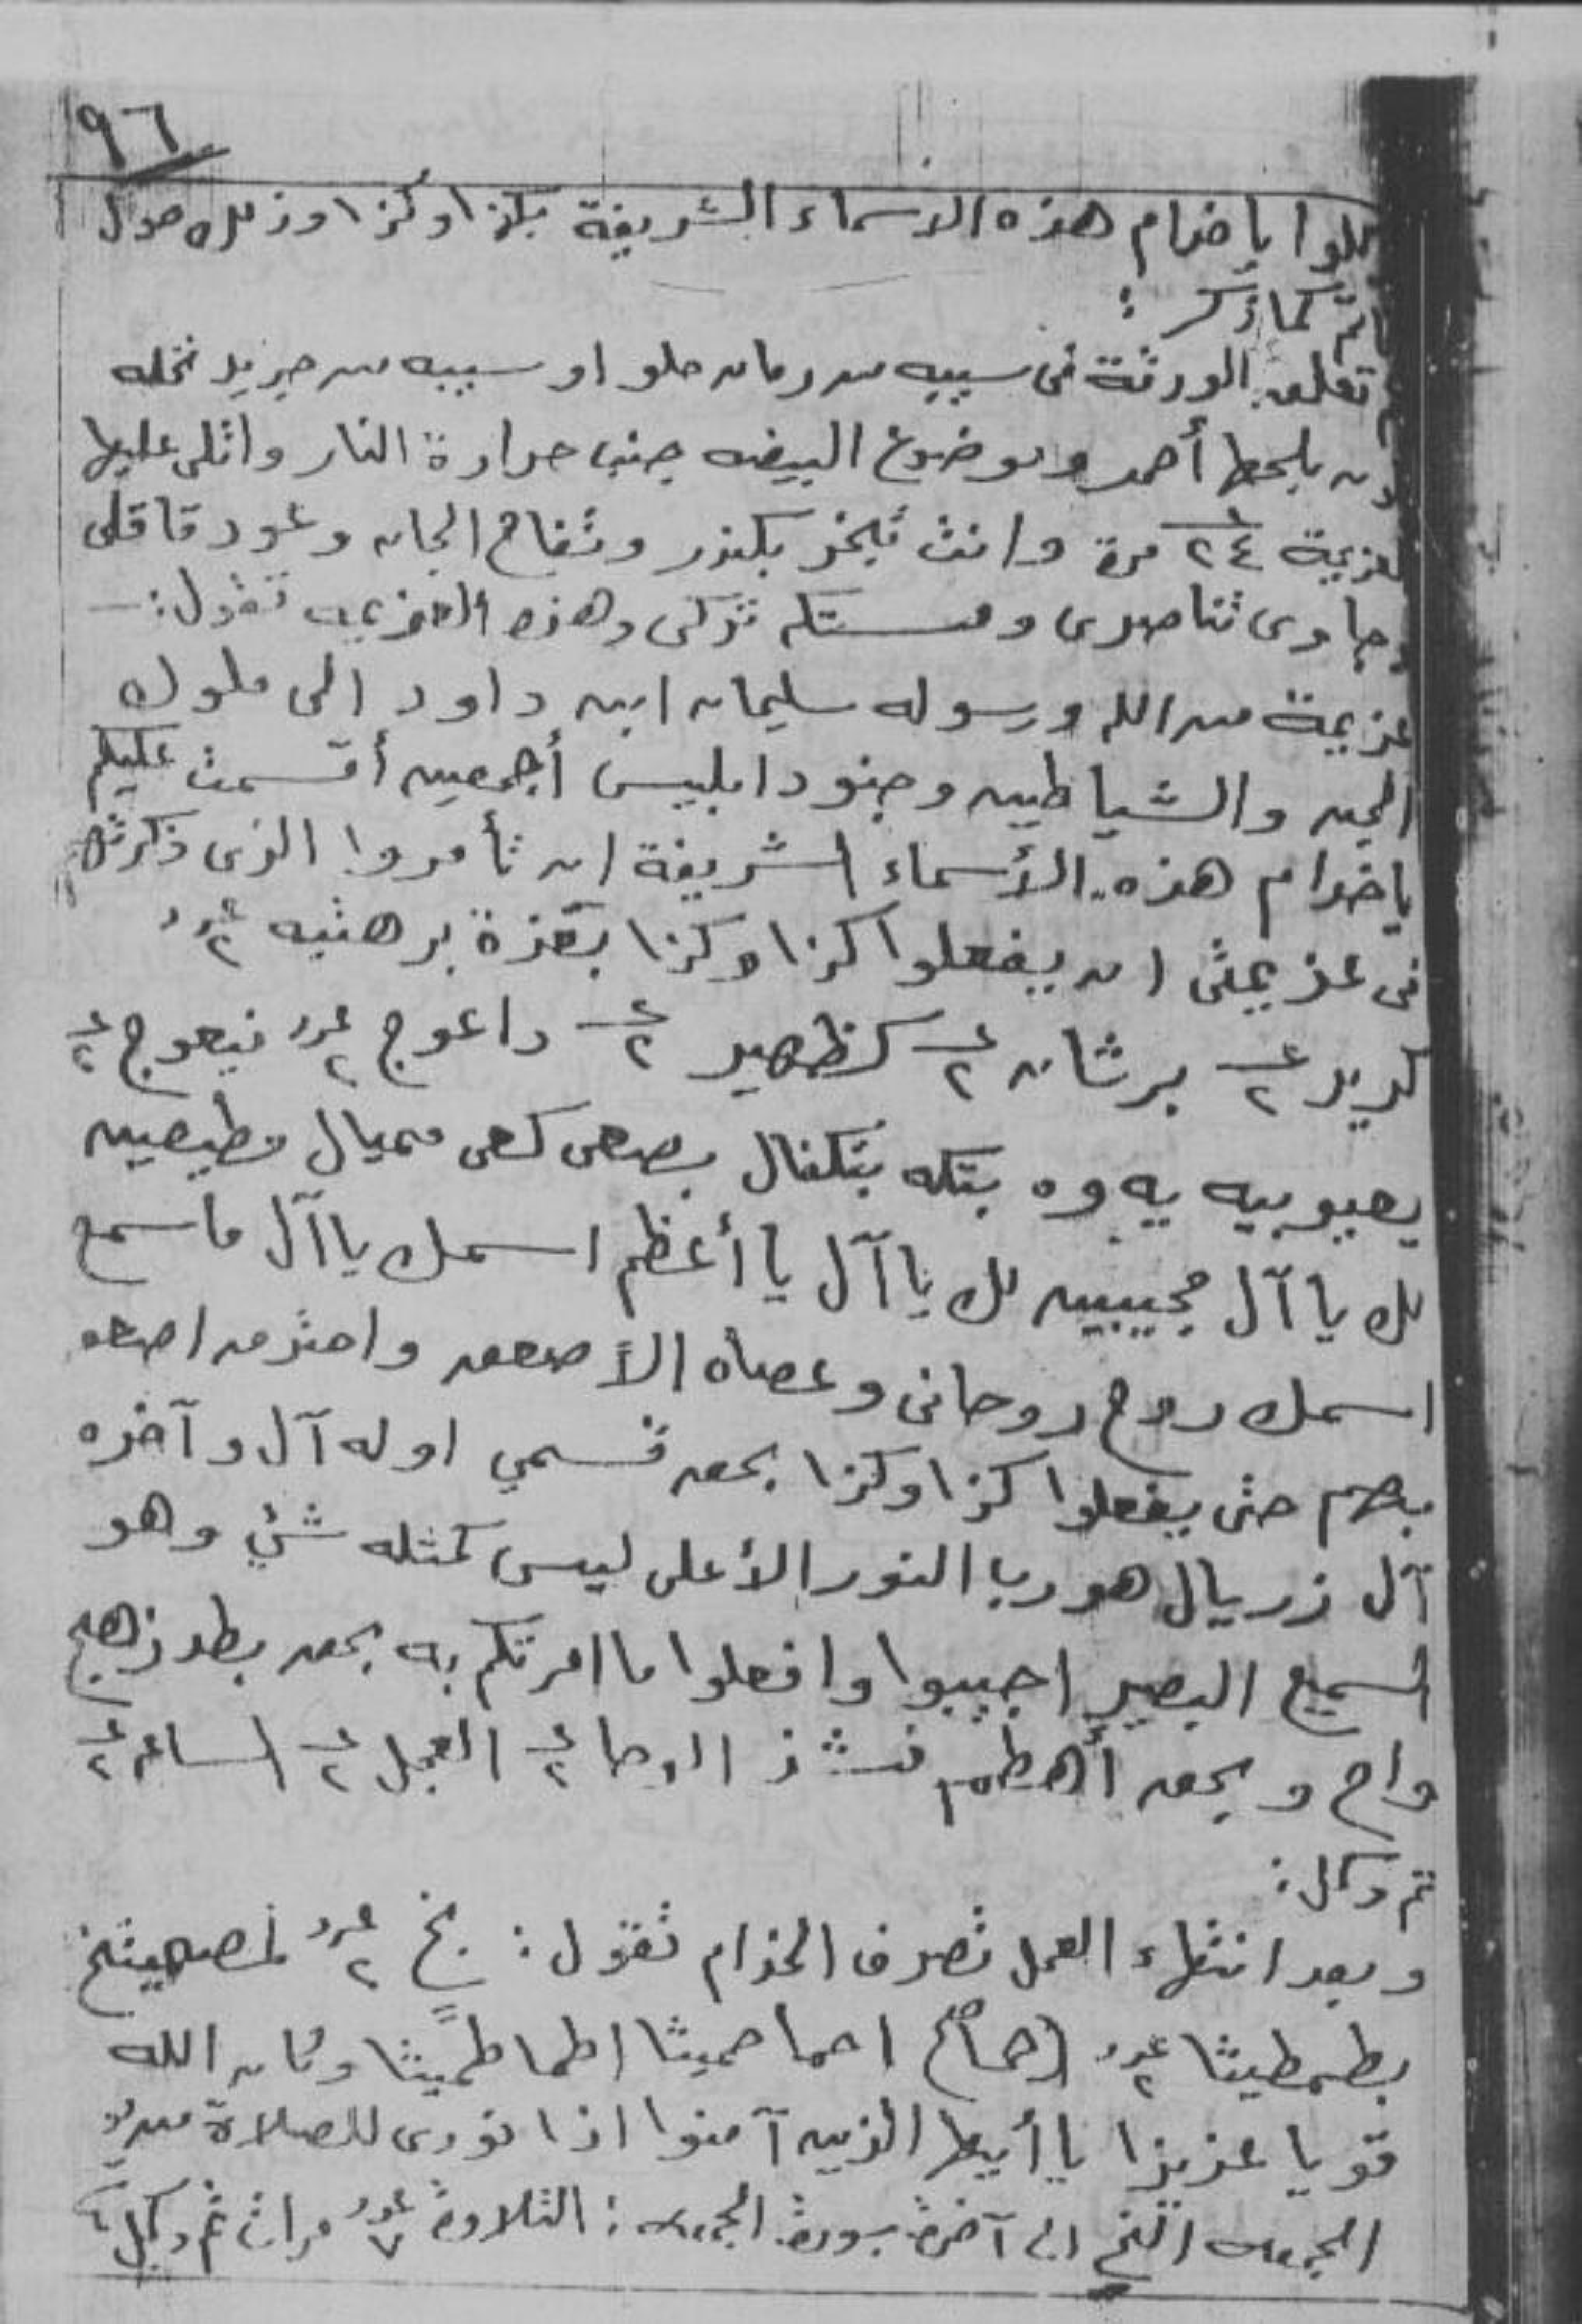 ٩٦
يا خدام هذه الاسماء الشريفة بكذا وكذا وذلك حول
كما ذكر :
تعلق الورقة فى سيبه من رمان حلو او سيبه من جريد نخله
بلحها أحمر وموضوع البيضه جنب حرارة النار واتلى عليها
لعزيمة ٢٤ مرة وانت تبخر بكندر وتفاح الجان وعود قاقلى
وجاوى تناصرى ومستكه تركى وهذه العزيمه تقول :ـ
عزيمة من الله ورسوله سليمان ابن داود الى ملوك
الجن والشياطين وجنود ابليس أجمعين أقسمت عليكم
ياخدام هذه الأسماء الشريفة ان تأمروا الذى ذكرتهم
فى عزيمتى ان يفعلوا كذا وكذا بعزة برهتيه ٢ عدد
كرير ع ٢ برشان ع ٢ كظهير ع ٢ داعوج ٢ عدد نيعوج ع ٢
يعيوبيه يه وه بتكه بتكفال بصعى كعى مميال مطيعين
لك يا آل مجيبين لك يا آل يا أعظم اسمك يا آل ماسمع
اسمك روح روحانى وعصاه الأ صعق واحترق اصعق
بهم حتى يفعلوا كذا وكذا بحق قسمي اوله آل وآخره
آل زريال هو رب النور الأعلى ليس كمثله شئ وهو
السميع البصير اجيبوا وافعلوا ما امرتكم به بحق بطد زهج
واح وبحق أهطم فشذ الوحا ع ٢ العجل ع ٢ الساعه ع ٢
تم وكل :
وبعد انتهاء العمل تصرف الخدام تقول : بخ ٢ عدد
بطمطيثا ٢ عدد احما حميثا اطما طميثا وكان الله
قويا عزيزا يا أيها الذين آمنوا اذا نودى للصلاة من يو
الجمعه الخ الى آخرة سورة الجمعه : التلاوة ٧ عدد مرات تم وكل